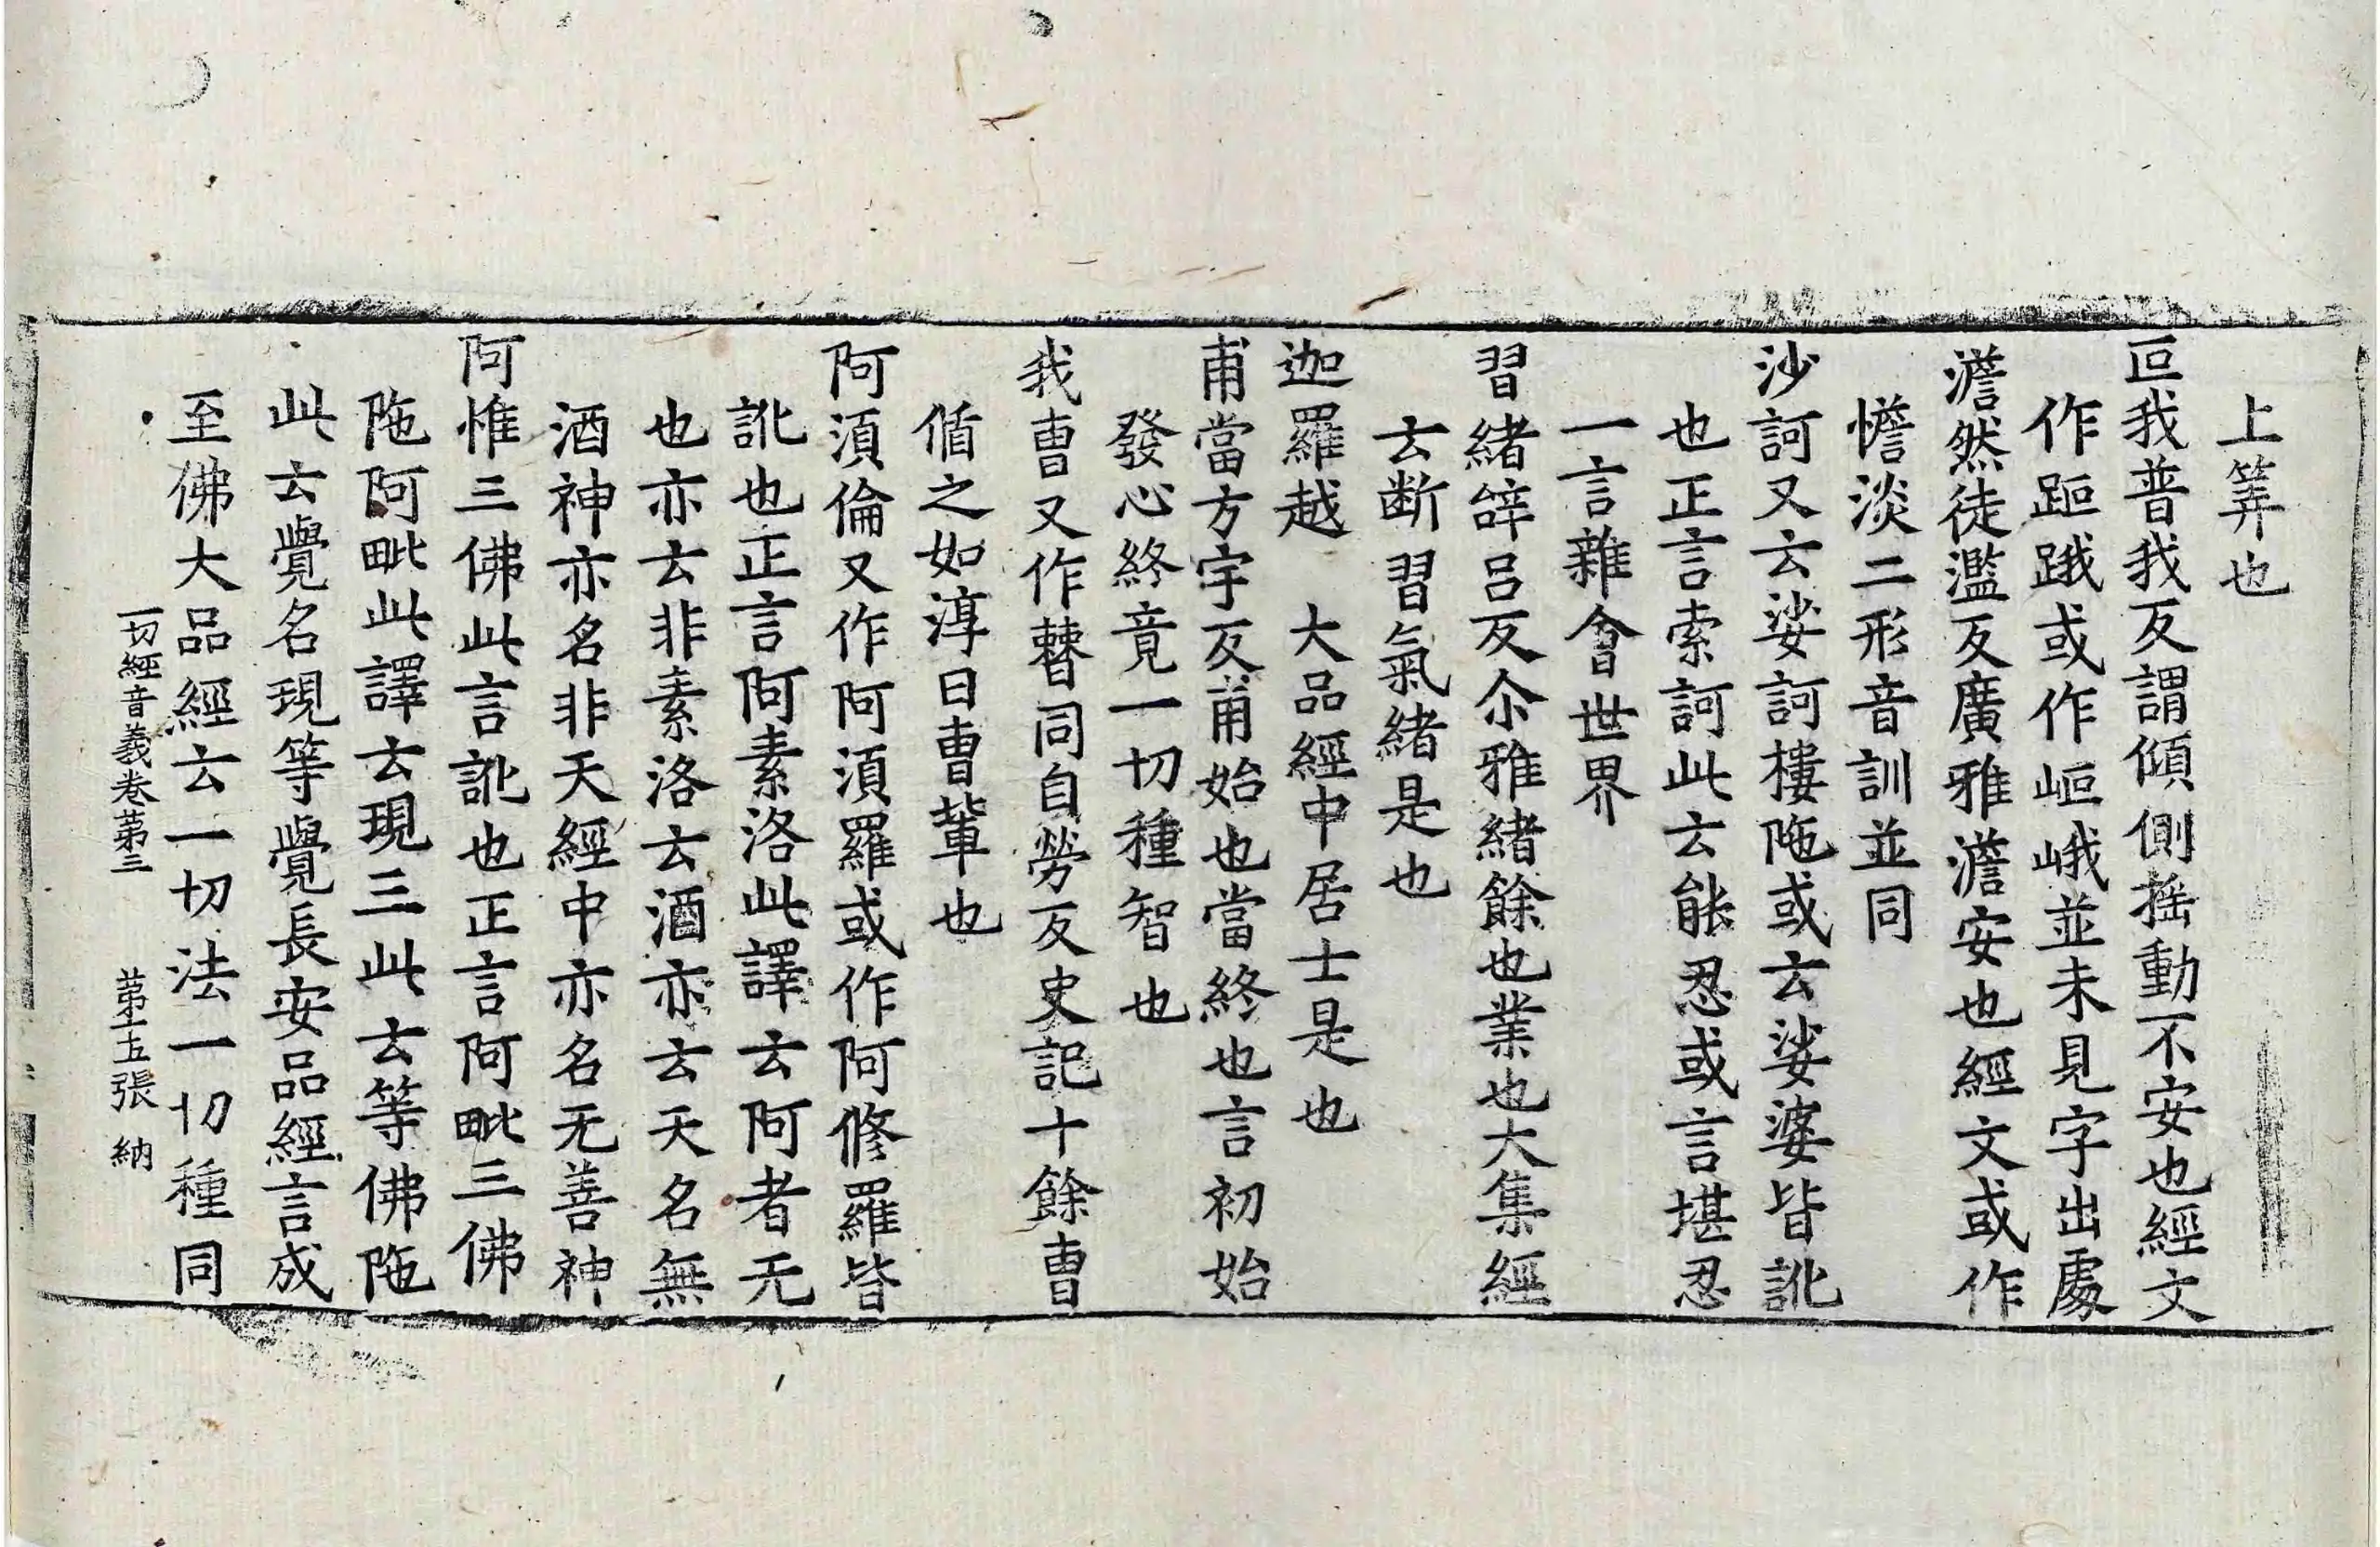 上筭也
叵我普我反謂傾側搖動不安也經文
作距跙或作岠峨並未見字出處
澹然徒濫反廣雅澹安也經文或作
憺淡二形音訓並同
沙訶又云娑訶樓陁或云娑婆皆訛
也正言索訶此云能忍或言堪忍
一言雜會世界
習緒辝呂反尒雅緒餘也業也大集經
云断習氣緒是也
迦羅越　大品經中居士是也
甫當方宇反甫始也當終也言初始
發心終竟一切種智也
我曺又作䜊同自勞反史記十餘曺
循之如淳曰曺輩也
阿須倫又作阿須羅或作阿修羅皆
訛也正言阿素洛此譯云阿者无
也亦云非素洛云酒亦云天名無
酒神亦名非天經中亦名无善神
阿惟三佛此言訛也正言阿毗三佛
陁阿毗此譯云現三此云等佛陁
此云覺名現等覺長安品經言成
至佛大品經云一切法一切種同
一切經音義卷第三　第十五張　納